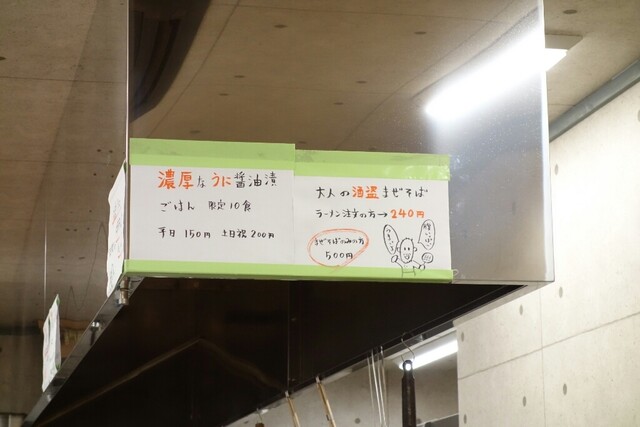 濃厚なうに醤油漬
ごはん 限定10食
平日150円 土日祝200円
大人の酒盗まぜそば
ラーメン注文の方→240円
まぜそばのみの方
500円